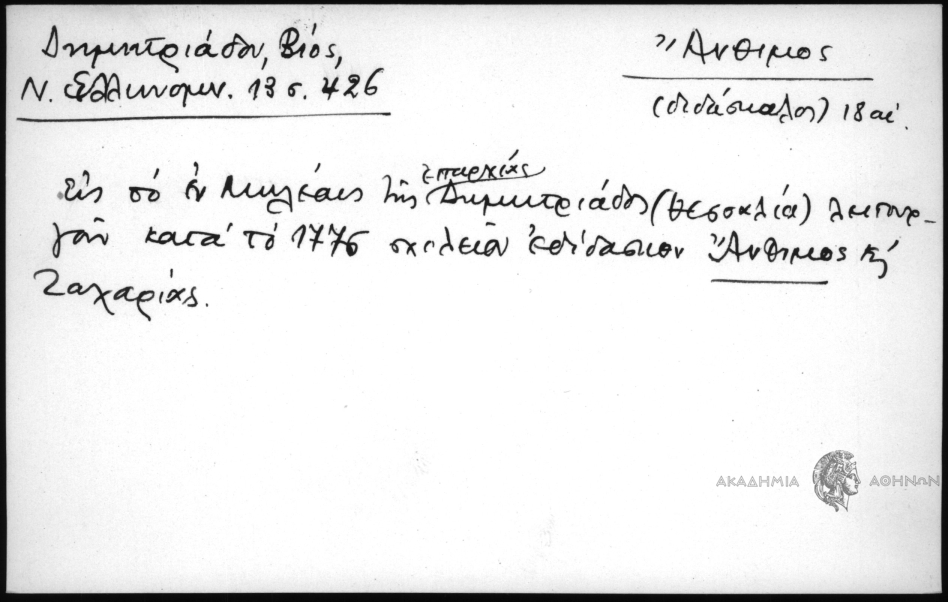 Δημητριάδου, Βιός,
Ν. Ἑλληνομν. 13 σ. 426
Ἄνθιμος
(διδάσκαλος) 18 αἰ.
Εἰς τὸ ἐν Μηλέαις τῆς ἐπαρχίας Δημητριάδος (Θεσσαλία) λειτουρ-
γοῦν κατὰ τὸ 1776 σχολεῖον ἐδίδασκον Ἄνθιμος κ
Ζαχαρίας.
ΑΚΑΔΗΜΙΑ ΑΘΗΝΩΝ